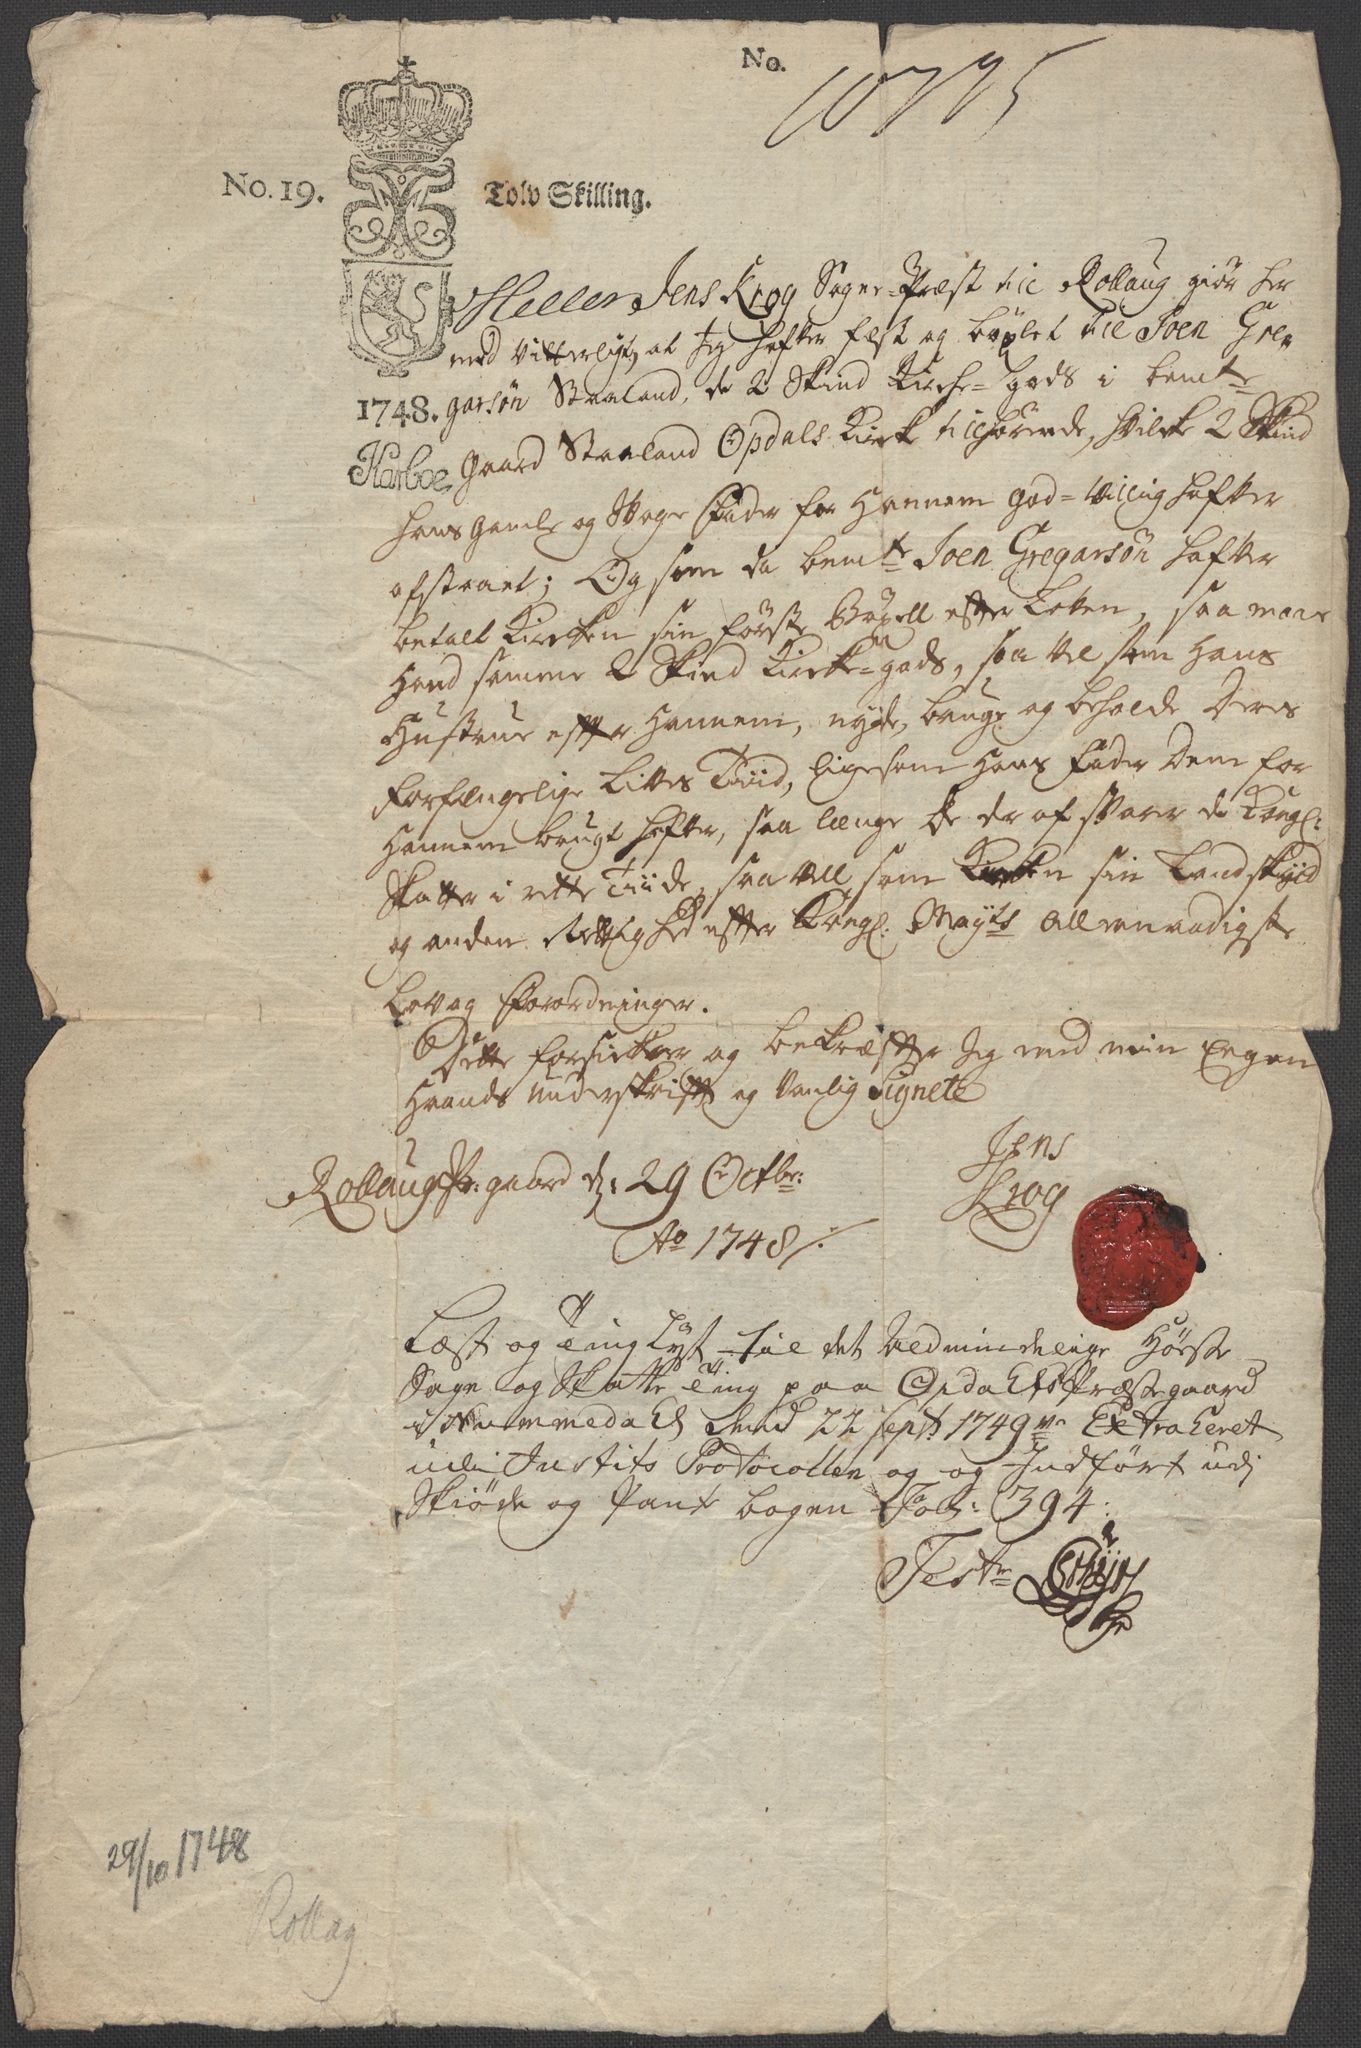 No.
10775
No. 19.
Tolv Skilling.
Jens Krog Sogne-Præst till Rollaug giör her
med vitterligt, at Jeg hafver fæst og böxlet till Joen Gre,,
1748.
garsön Straland, de 2 Skind Kirche-gods i bemte
Karboe
gaard Straland Opdals Kirke tilhörende, hvilke 2 Skind
hans gamle og Svage Fader for Hannem god-villig hafver
afstaaet; Og som da bemte Joen Gregarsön hafver
betalt Kircken sin förste Böxell efter Loven, saa maae
Hand samme 2 Skind Kirke-gods, saa vel som Hans
Hustrue efter Hannem, nyde, bruge og beholde Deres
forfængelige Livves Tiid, ligesom Hans Fader Dem for
Hannem brugt hafver, saa længe De der af svarer de Kongl:
Skatter i rette Tiide, saa vell som Kirken sin Landskyld
og anden Rettighed efter Kongl: Mayts allernaadigste
Lov og Forordninger.
Dette forsickrer og bekræfter Jeg med min Egen
Haands Underskrift og Vanlig Signete
Rollaug Pr: gaard d: 29 Octbr:
Ao 1748 /.
Jens
Krog
Læst og Ting Lyst til det Aldmindelige Höste
Sage og Skatte Ting paa Opdahls Præstegaard
i Nummedahl dend 22 Sept: 1749 Extraheret
udi Justits Protocollen og og Indfört udj
Skiöde og Pante bogen Fol: 394:
Testr
29/10 1748
Rollag